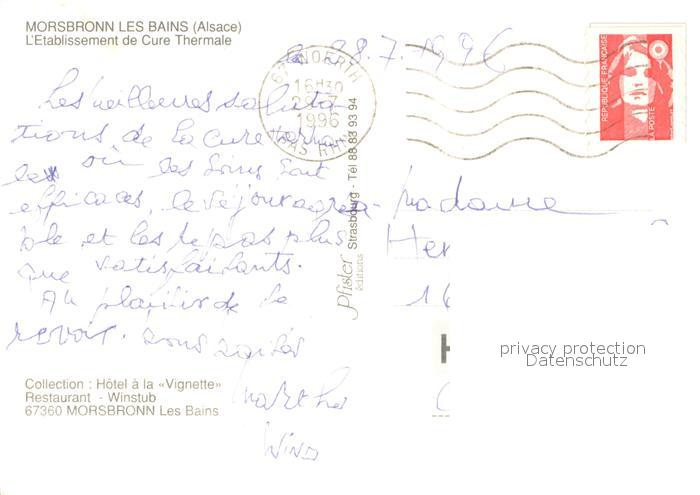 MORSBRONN LES BAINS (Alsace)
L'Etablissement de Cure Thermale
le 28.7.1996
67 WOERTH
16H30
1996
BAS RHIN
REPUBLIQUE FRANÇAISE
LA POSTE
Les meilleures saluta
tions de la cure
où les soins sont
efficaces, le séjour agréa-
ble et les repas plus
que satisfaisants.
Au plaisir de te
revoir.
Martha
Madame
Pfister
éditions
Strasbourg - Tél 88 83 93 94
privacy protection
Datenschutz
Collection : Hôtel à la «Vignette»
Restaurant - Winstub
67360 MORSBRONN Les Bains